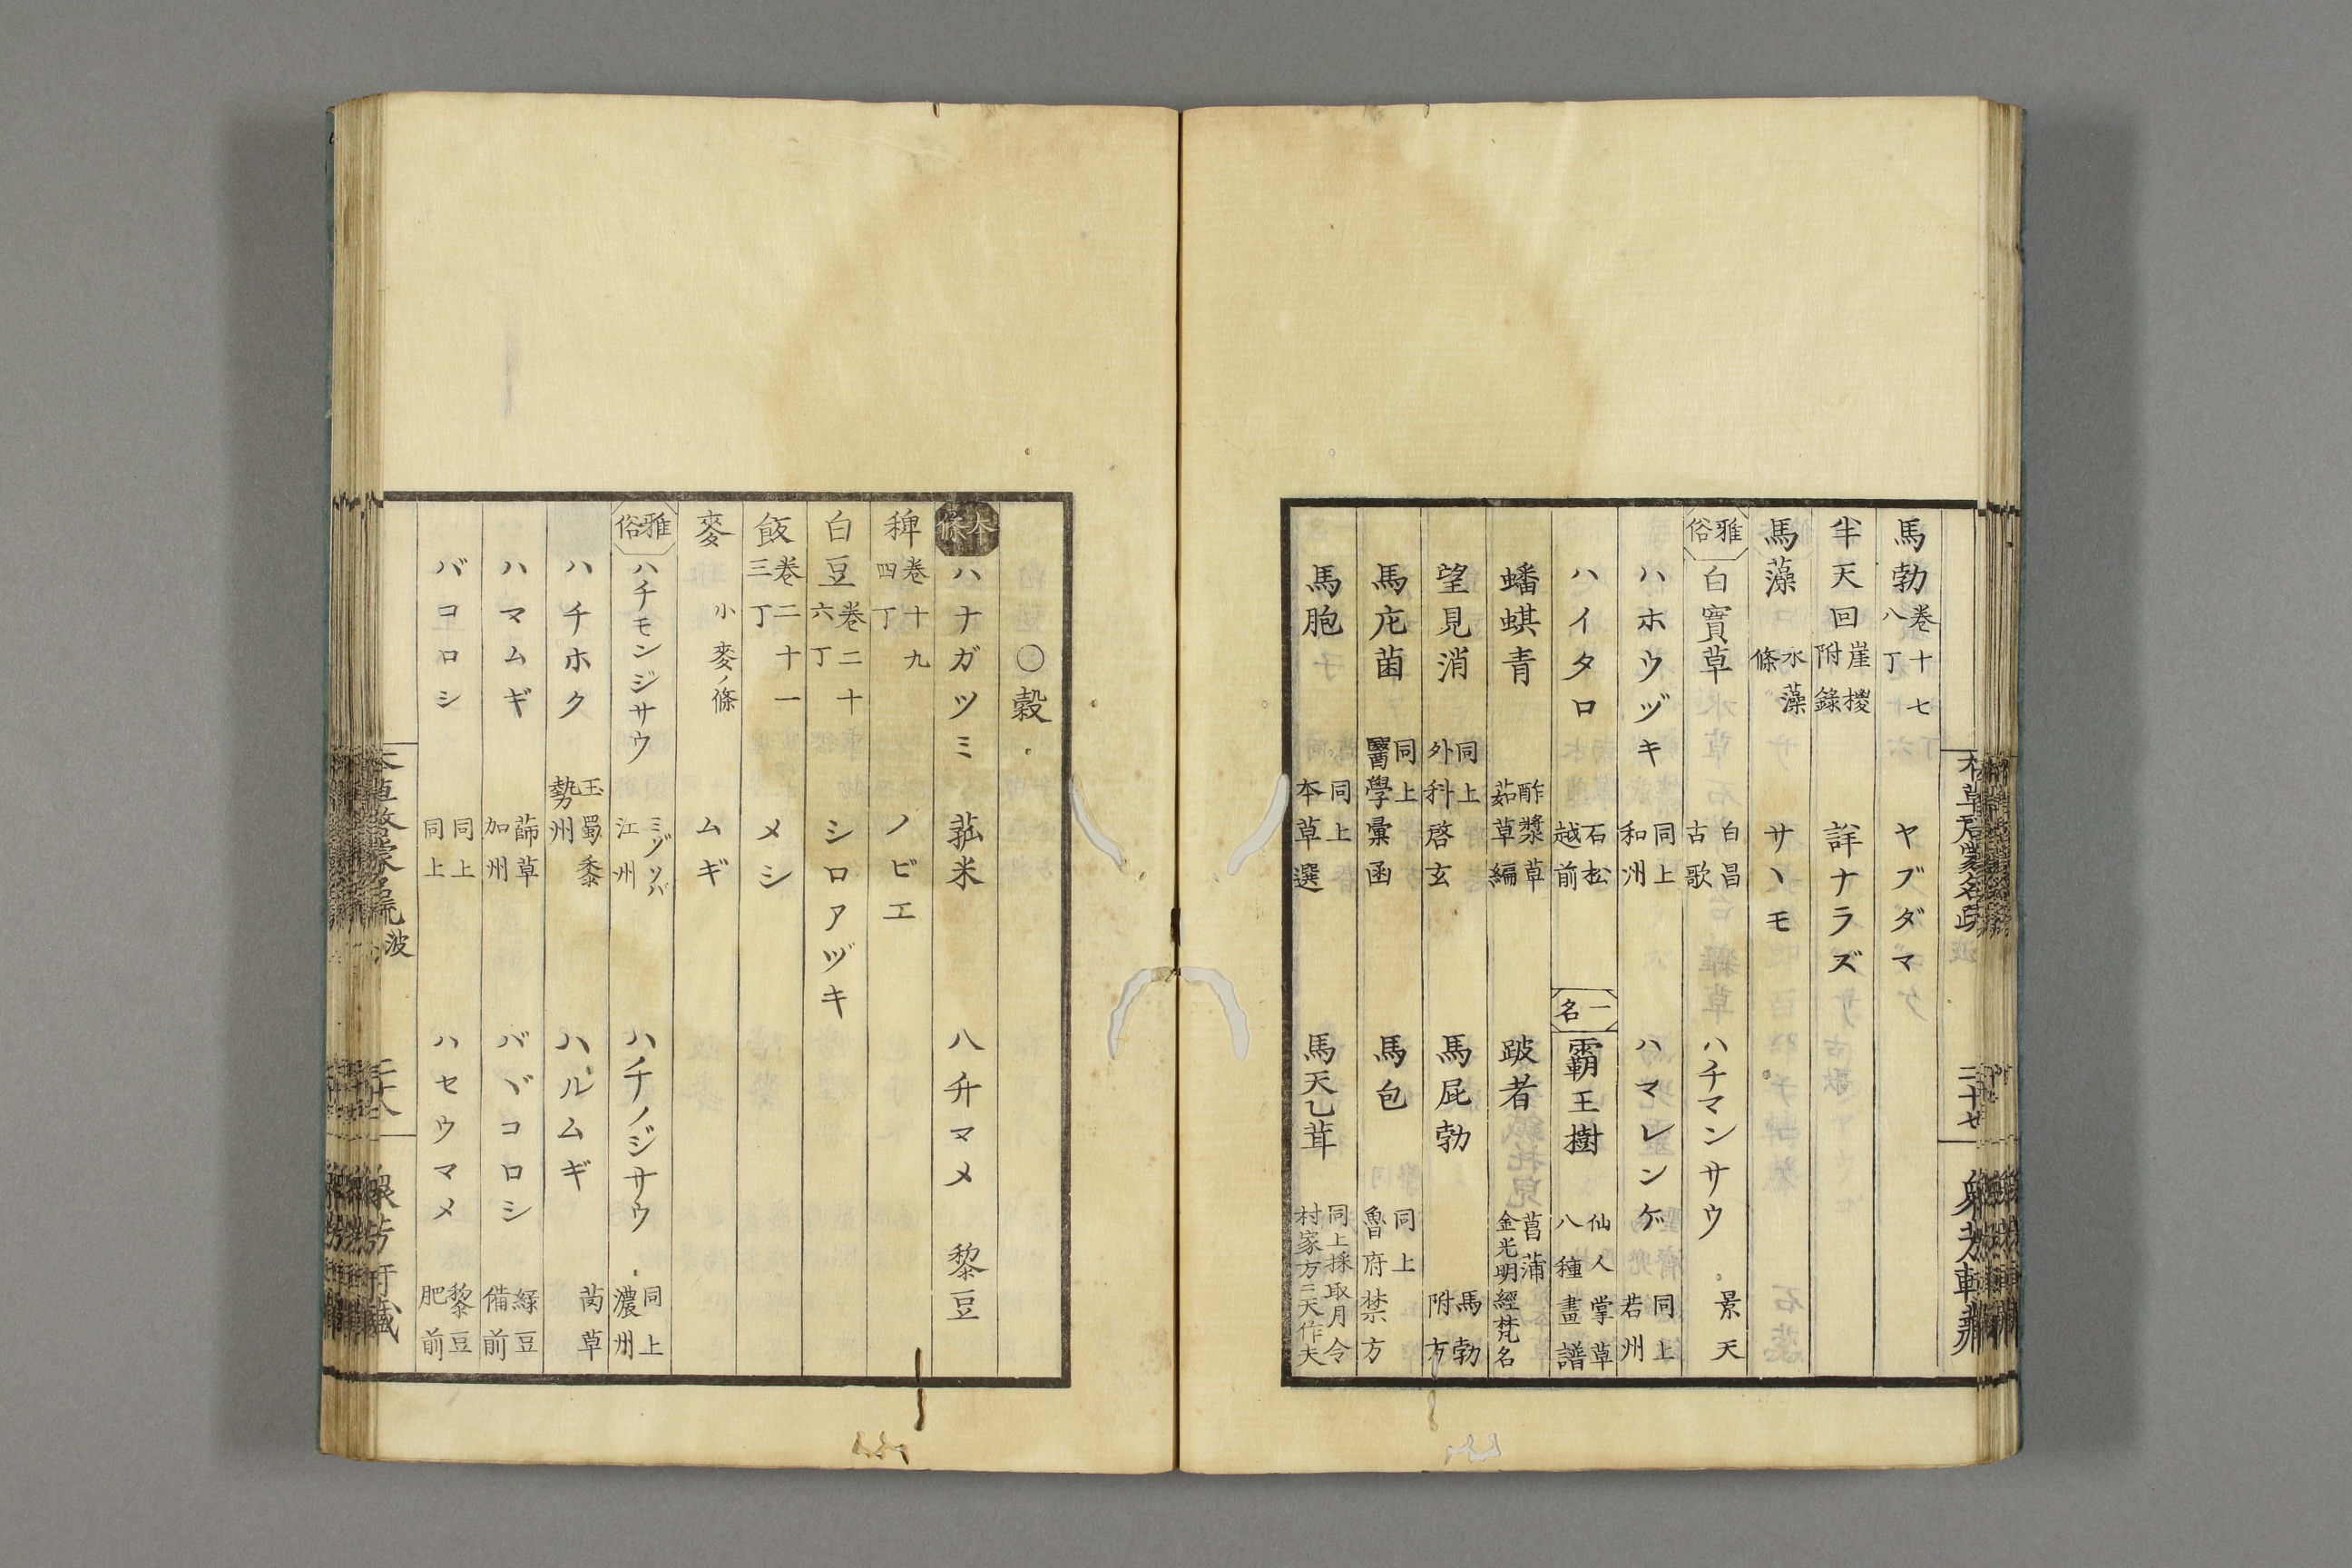 馬勃 卷十七 八丁 ヤブダマ
半天回 崖㯶 附錄 詳ナラズ
馬藻 水藻 條 サヽモ
雅俗 白實草 白昌 古歌 ハチマンサウ 景天
ハホウヅキ 同上 和州 ハマレンゲ 同上 若州
ハイタロ 石松 越前 一名 霸王樹 仙人掌草 八種畫譜
蟠蜞青 酢漿草 茹草編 跛者 菖蒲 金光明經梵名
望見消 同上 外科啓玄 馬屁勃 馬勃 附方
馬庀菌 同上 醫學彙函 馬包 同上 魯府禁方
馬胞 同上 本草選 馬天乙茸 同上採取月令 村家方三天作夫
本草啓蒙名疏
二十七
〇穀
本條 ハナガツミ 菰米 八升マメ 黎豆
稗 卷十九 四丁 ノビエ
白豆 卷二十 六丁 シロアヅキ
飯 卷二十一 三丁 メシ
麥 小麥ノ條 ムギ
雅俗 ハチモンジサウ ミゾソバ 江州 ハチノジサウ 同上 濃州
ハチホク 玉蜀黍 勢州 ハルムギ 䒽草
ハマムギ 蒒草 加州 バヾコロシ 綠豆 備前
バコロシ 同上 同上 ハセウマメ 黎豆 肥前
本草啓蒙名疏 波 二十八